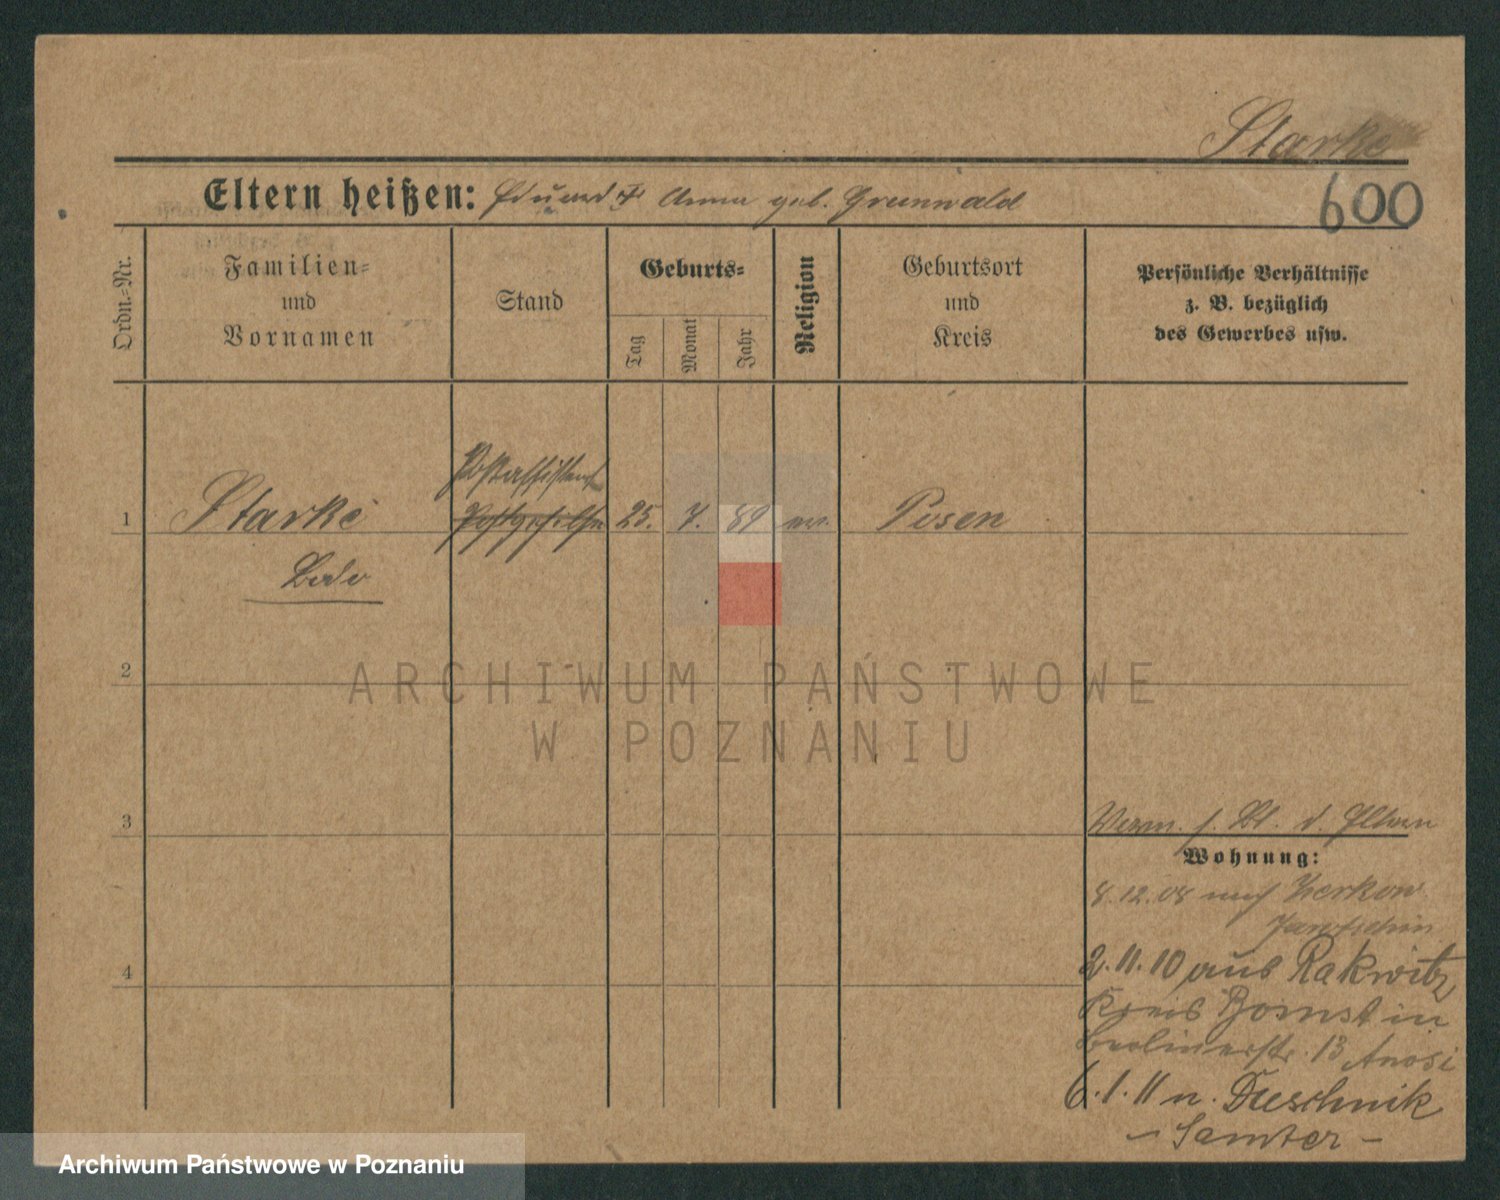 Starke
600
Eltern heißen: Eduard † Anna geb. Grunwald
Ordn.-Nr.
Familien-
und
Vornamen
Stand
Geburts-
Tag
Monat
Jahr
Religion
Geburtsort
und
Kreis
Persönliche Verhältnisse
z. B. bezüglich
des Gewerbes usw.
Postassistent
1 Starke Postgehilfe 25. 7. 89 ev. Posen
Bodo
2
ARCHIWUM PAŃSTWOWE
W POZNANIU
3
Verm. s. Bl. d. Eltern
Wohnung:
8.12.08 nach Zerkow
Jarotschin
4
2.11.10 aus Rakwitz
Kreis Bomst in
Berlinerstr. 13
6.1.11 n. Duschnik
– Samter –
Archiwum Państwowe w Poznaniu